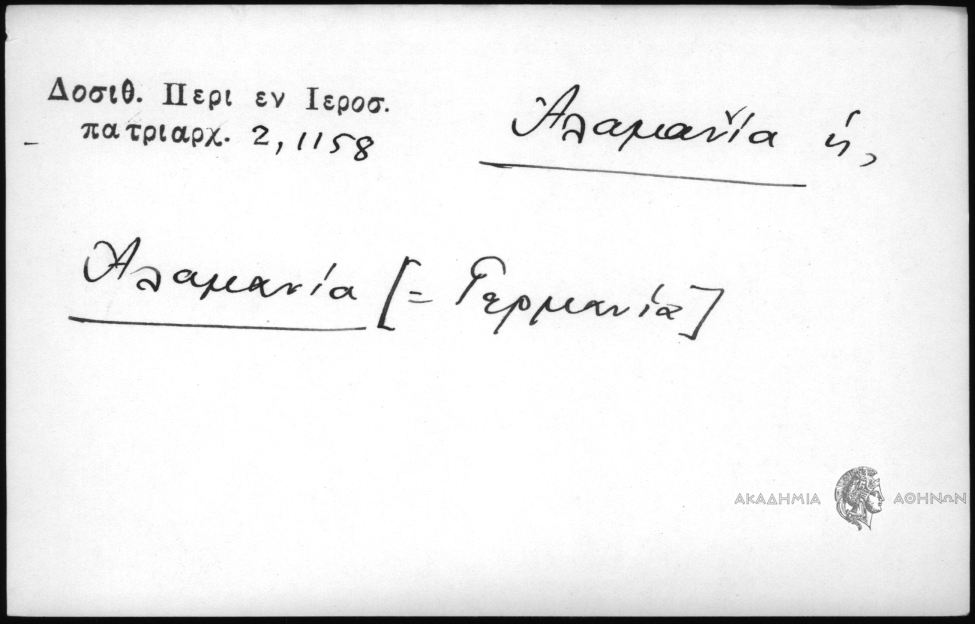 Δοσιθ. Περι εν Ιεροσ.
πατριαρχ. 2, 1158
Ἀλαμανία ἡ,
Ἀλαμανία [= Γερμανία]
ΑΚΑΔΗΜΙΑ ΑΘΗΝΩΝ